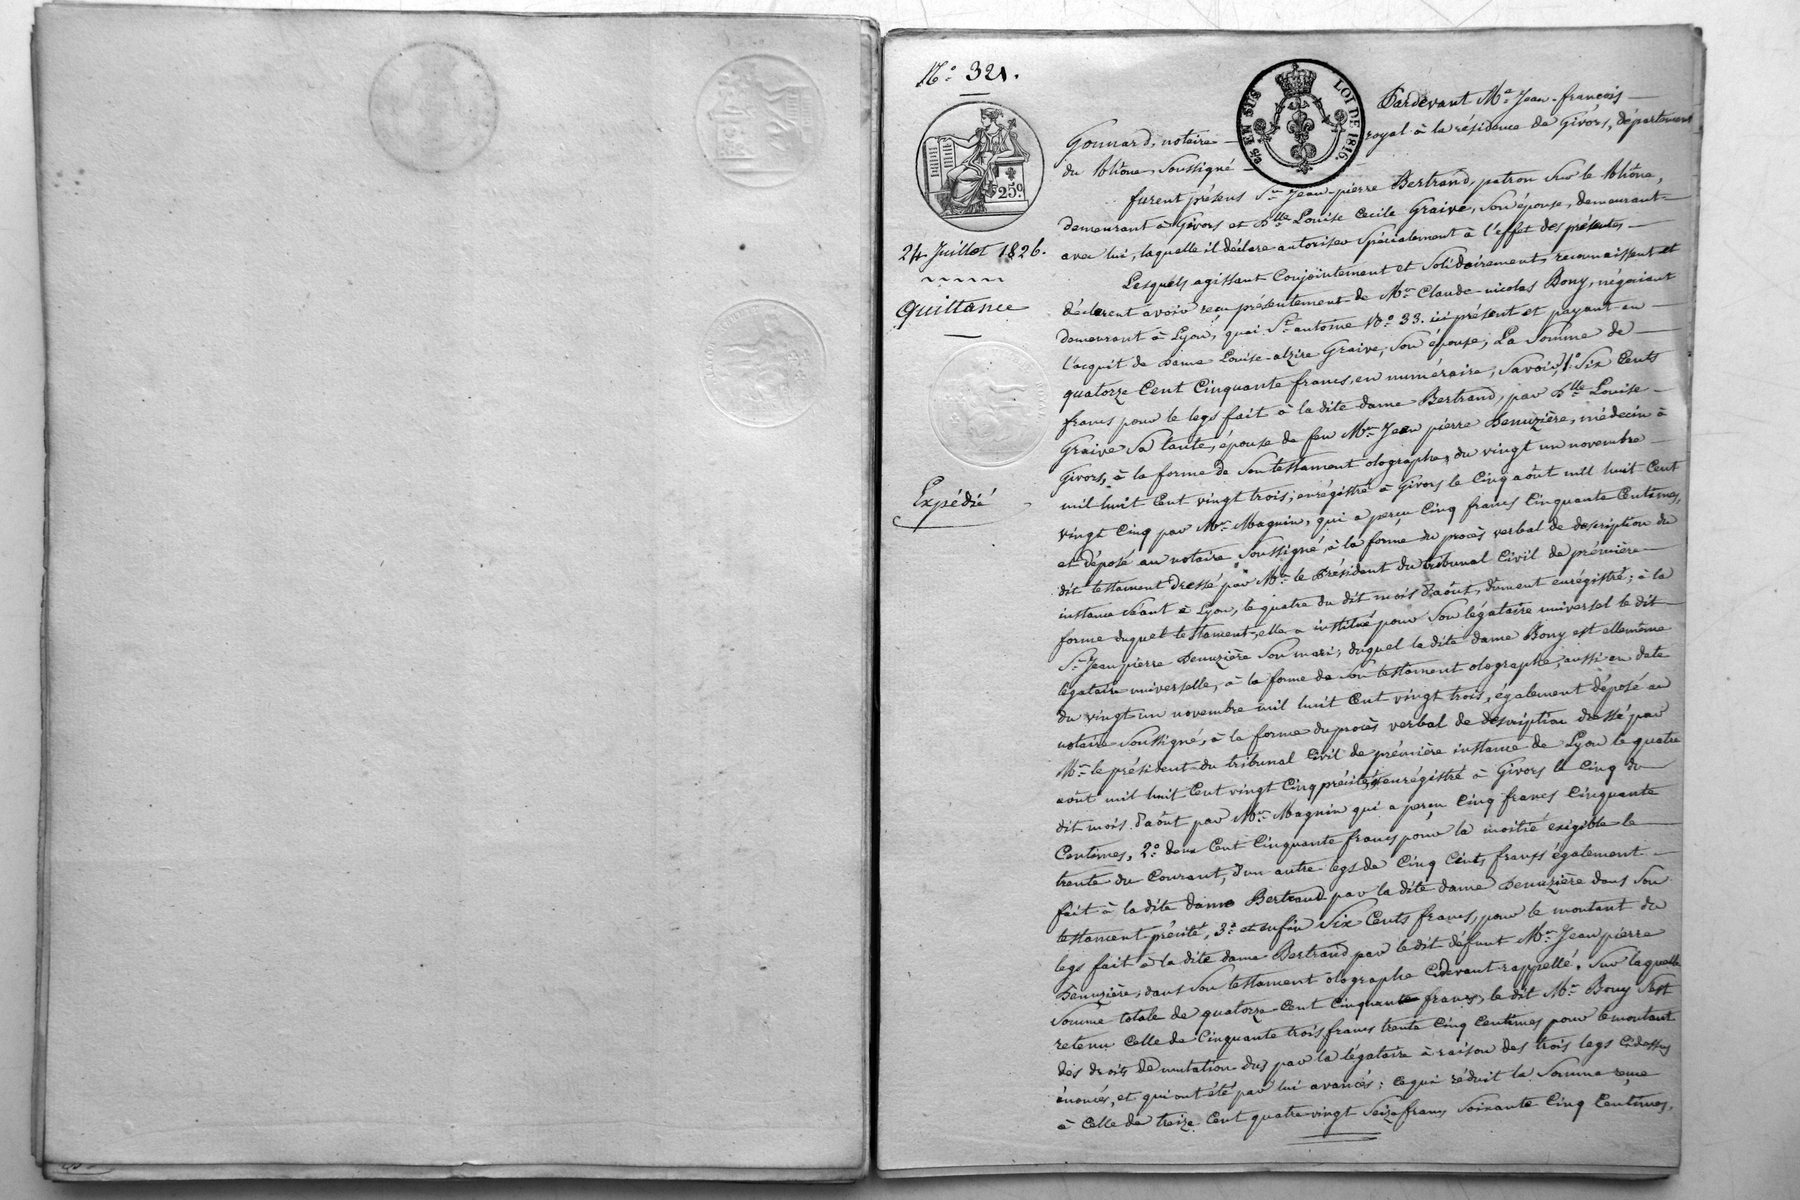 N.° 321.
25c
24 Juillet 1826.
Quittance
Expédié
LOI DE 1816.
EN SUS
Pardevant Me. Jean-françois
Gonnard, notaire royal à la résidence de Givors, département
du Rhône, Soussigné
furent présens Sr. Jean-pierre Bertrand, patron Sur le Rhône,
demeurant à Givors et Dlle Louise Cecile Graive, Son épouse, demeurant
avec lui, laquelle il déclare autoriser Spécialement à l'effet des présentes,
Lesquels agissant Conjointement et Solidairement reconnaissent et
déclarent avoir reçu présentement de Mr. Claude-nicolas Bony, négociant
demeurant à Lyon, quai St. antoine N.° 33. ici présent et payant en
l'acquit de Dame Louise-alzire Graive, Son épouse, La Somme de
quatorze Cent Cinquante francs, en numéraire, Savoir, 1.° Six Cents
francs pour le legs fait à la dite dame Bertrand, par Dlle Louise
Graive Sa tante, épouse de feu Mr. Jean pierre Denuzière, médecin à
Givors, à la forme de Son testament olographe, du vingt un novembre
mil huit Cent vingt trois, enrégistré à Givors le Cinq août mil huit Cent
vingt Cinq par Mr. Magnin, qui a perçu Cinq francs Cinquante Centimes,
et déposé au notaire Soussigné, à la forme du procès verbal de description du
dit testament Dressé par Mr. le Président du tribunal Civil de prémière
instance séant à Lyon, le quatre du dit mois d'août, dûment enrégistré; à la
forme duquel testament, elle a institué pour Son légataire universel le dit
Sr. Jean pierre Denuzière Son mari, duquel la dite dame Bony est ellemême
légataire universelle, à la forme de Son testament olographe, aussi en date
du vingt-un novembre mil huit Cent vingt trois, également déposé au
notaire Soussigné, à la forme du procès verbal de description dressé par
Mr. le président du tribunal Civil de prémière instance de Lyon le quatre
août mil huit Cent vingt Cinq précité, enrégistré à Givors le Cinq du
dit mois d'août par Mr. Magnin qui a perçu Cinq francs Cinquante
Centimes, 2.° deux Cent Cinquante francs pour la moitié exigible le
trente du Courant, d'un autre legs de Cinq Cents francs également
fait à la dite dame Bertrand par la dite dame Denuzière dans Son
testament précité, 3.° et enfin Six Cents francs, pour le montant du
legs fait à la dite dame Bertrand par le dit défunt Mr. Jean pierre
Denuzière, dans Son testament olographe Cidevant rappellé. Sur laquelle
Somme totale de quatorze Cent Cinquante francs, le dit Mr. Bony S'est
retenu Celle de Cinquante trois francs trente Cinq Centimes pour le montant
des droits de mutation dus par la légataire à raison des trois legs Cidessus
énoncés, et qui ont été par lui avancés; Ce qui réduit la Somme reçue
à Celle de treize Cent quatre vingt Seize francs Soixante Cinq Centimes,